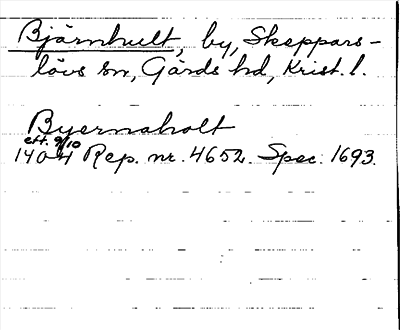 Bjärnhult, by, Skeppars-
lövs sn, Gärds hd, Krist. l.
Byernaholt
eft. 9/10
1404 Rep. nr. 4652. Spec. 1693.